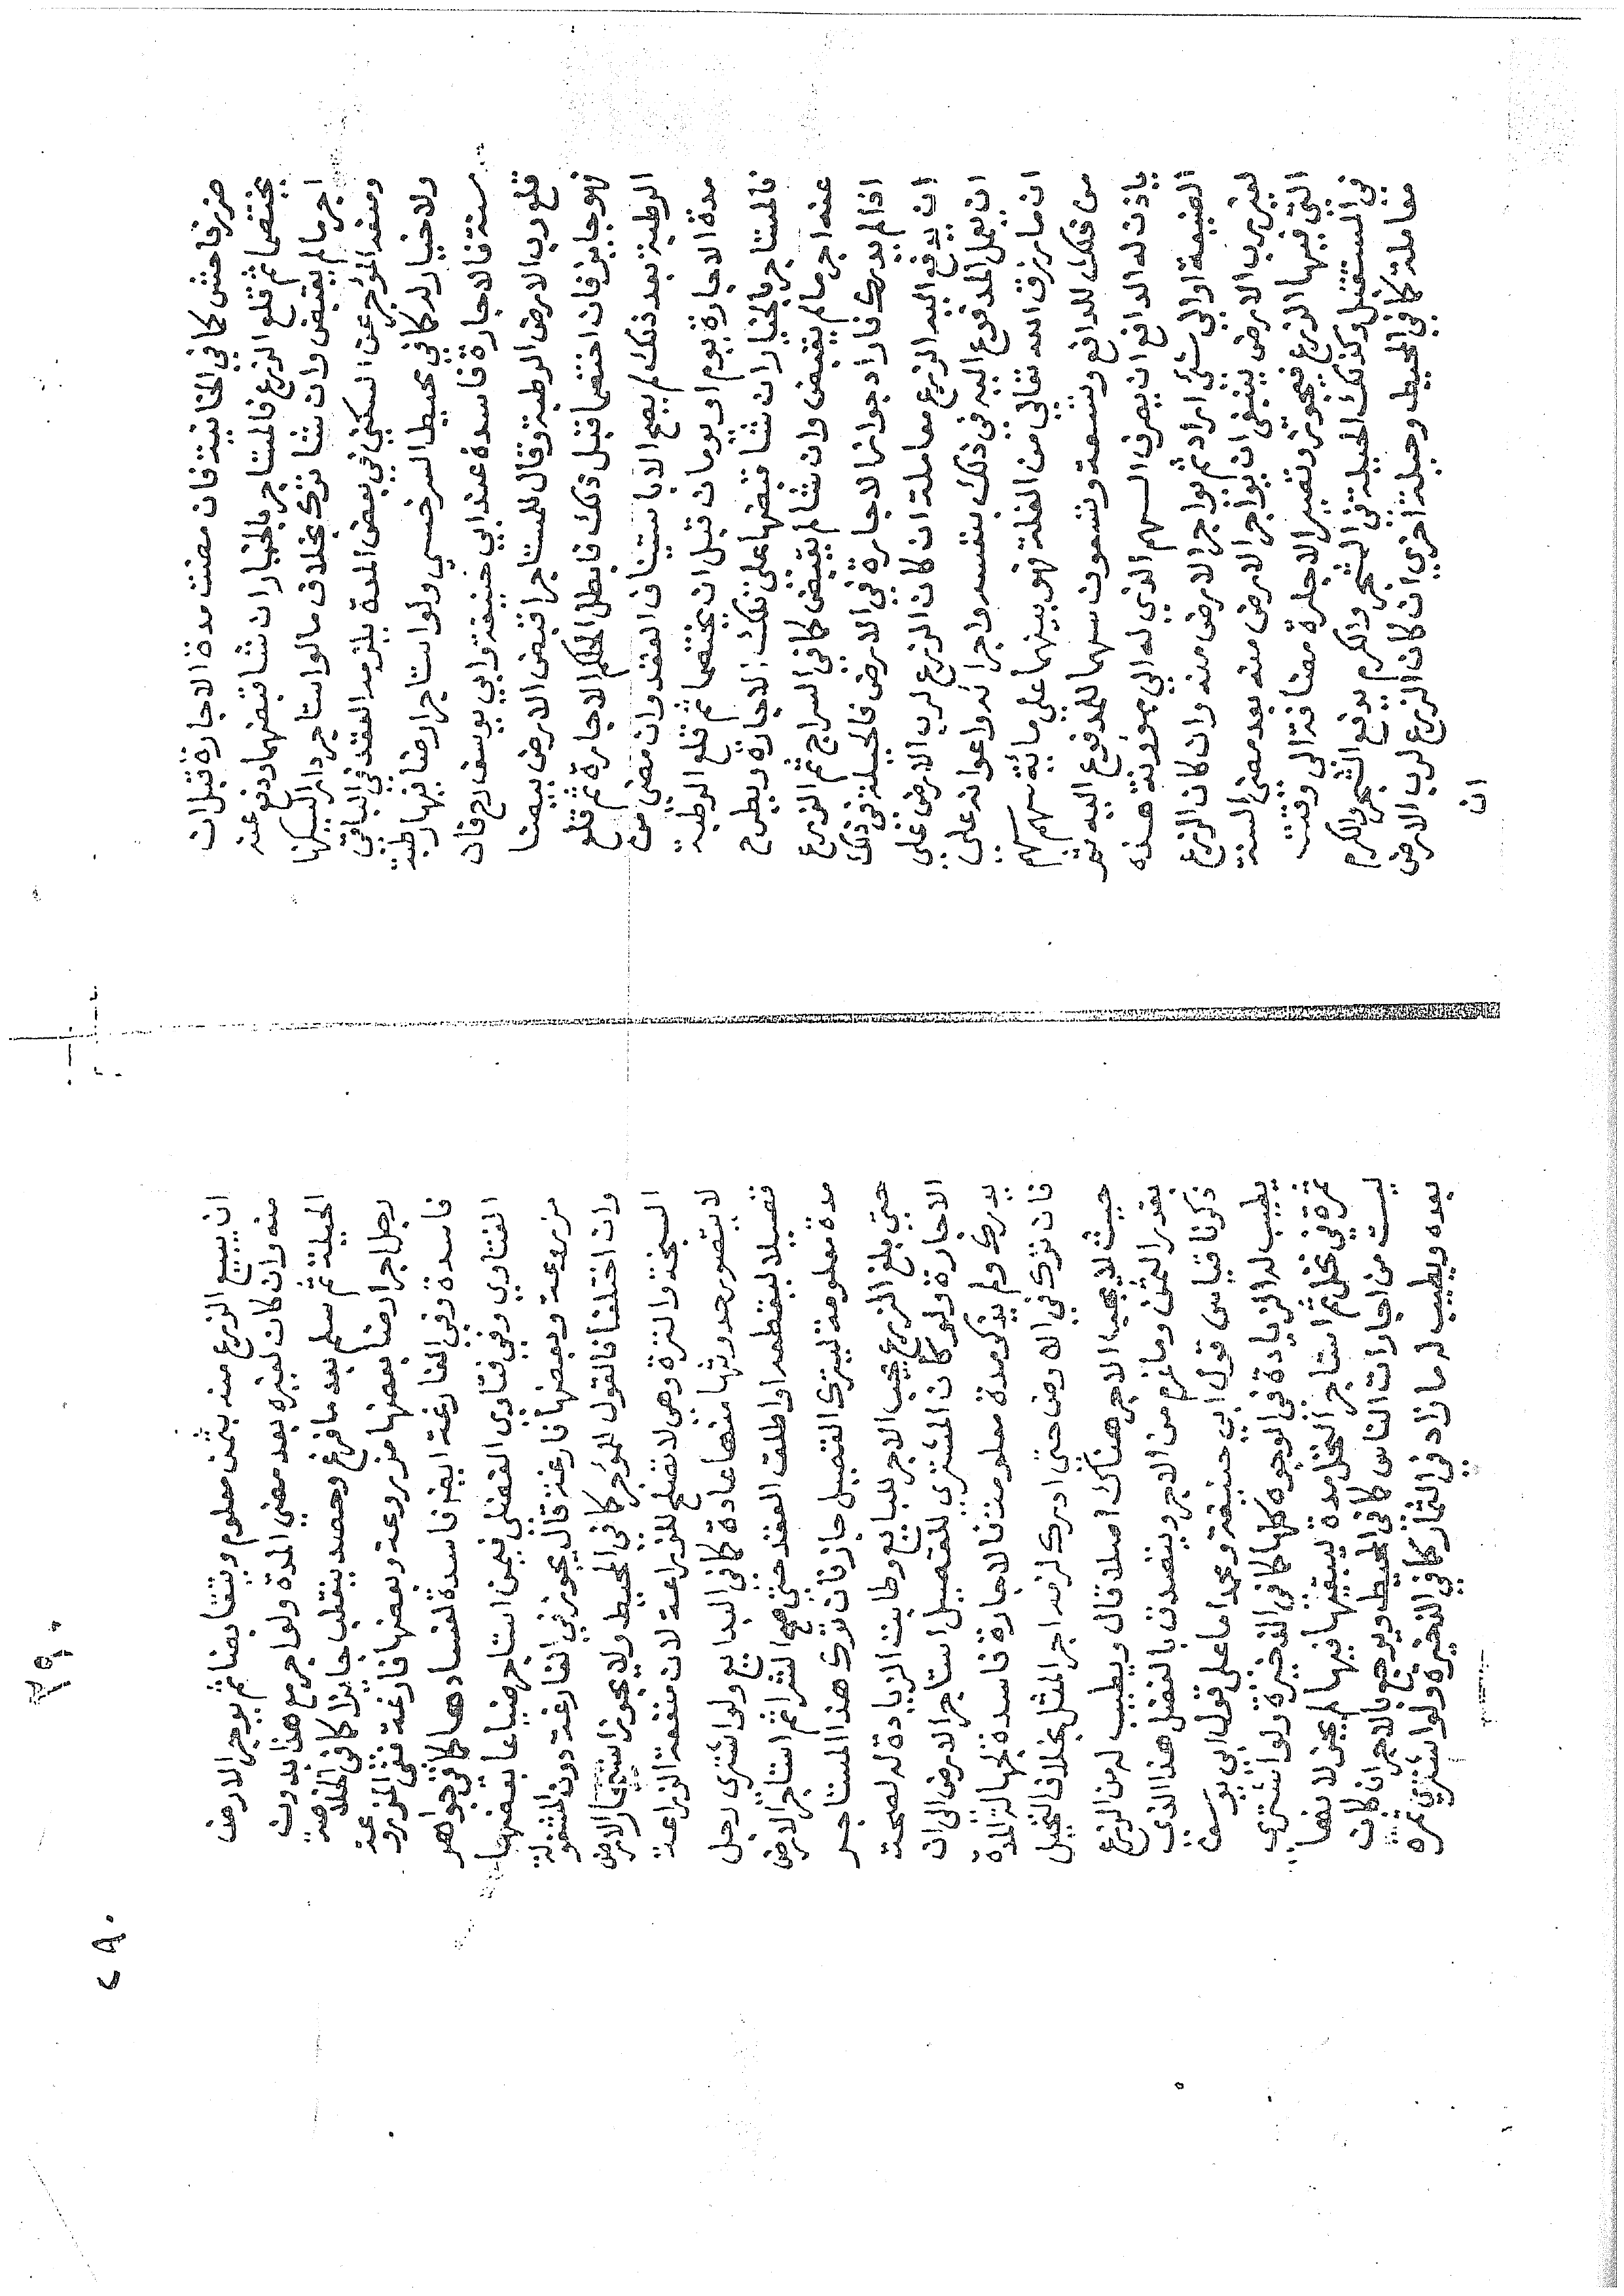 ضرر فاحش كما في الخانية فان مضت مدة الاجارة قبل ان
يختصما ثم قلع الزرع فالمستاجر بالخيار ان شا قبضها ودفع عنه
اجر ما لم يقبض وان شا ترك بخلاف ما لو استاجر دار ليسكنها
ومنعه المؤجر عن السكني في بعض المدة يلزمه العقد في الباقي
ولا خيار له كما في محيط السرخسي ولو استاجر ارضا فيها رطبة
سنة فالاجارة فاسدة عند ابي حنيفة وابي يوسف رح فان
قلع رب الارض الرطبة وقال للمستاجر اقبض الارض بيضا
فهو جايز فان اختصما قبل ذلك فابطل الحاكم الاجارة ثم قلع
الرطبة بعد ذلك لم يصح الا باستيناف العقد وان مضى من
مدة الاجارة يوم او يومان قبل ان يختصما ثم قلع الرطبة
فالمستاجر بالخيار ان شا قبضها على تلك الاجارة ويطرح
عنه اجر ما لم يقبض وان شا لم يقبض كما في السراج ثم الزرع
اذا لم يدرك فاراد جواز الاجارة في الارض فالحيلة في ذلك
ان يدفع اليه الزرع معاملة ان كان الزرع لرب الارض على
ان يعمل المدفوع اليه في ذلك بنفسه واجرائه واعوانه على
ان ما رزق الله تعالي من الغلة فهو بينهما على مائة سهم سهم
من ذلك للدافع وتسعة وتسعون سهما للمدفوع اليه ثم
ياذن له الدافع ان يصرف السهم الذي له الي مؤونة هذه
الضيعة او الي شئ اراد ثم يواجر الارض منه وان كان الزرع
لغير رب الارض ينبغي ان يواجر الارض منه بعد مضى السنة
التي فيها الزرع فيجوز وتصير الاجارة مضافة الى وقت
في المستقبل وكذلك الحيلة في الشجر والكرم يدفع الشجر والكرم
معاملة كما في المحيط وحيلة اخرى ان كان الزرع لرب الارض
ان
ان يبيع الزرع منه بثمن معلوم ويتقابضا ثم يوجر الارض
منه وان كان لغيره بعد مضي المدة ولو اجر مع هذا بدون
الحيلة ثم سلم بعد ما فرغ وحصد ينقلب جايزا كما في الخلاصة
رجل اجر ارضا بعضها مزروعة وبعضها فارغة ففي المزروعة
فاسدة وفي الفارغة ايضا فاسدة لفسادها كما في جواهر
الفتاوي وفي فتاوى الفضلي فيمن استاجر ضياعا بعضها
مزروعة وبعضها فارغة قال يجوز في الفارغة دون المشغولة
وان اختلفا فالقول للمؤجر كما في المحيط ولا يجوز استيجار الارض
السبخة والنزة وهي لا تصلح للزراعة لان منفعة الزراعة
لا يتصور حدوثها منها عادة كما في البدايع ولو اشترى رجل
قصيلا ليقطعه او اطلق العقد حتى صح الشرا ثم استاجر الارض
مدة معلومة ليترك القصيل جاز فان ترك هذا المستاجر
حتى بلغ الزرع يجب الاجر للبايع وطابت الزيادة له لصحة
الاجارة ولو كان المشتري للقصيل استاجر الارض الى ان
يدرك ولم يذكر مدة معلومة فالاجارة فاسدة لجهالة المدة
فان ترك في الارض حتى ادرك لزمه اجر المثل بخلاف النخيل
حيث لا يجب الاجر هناك اصلا قال ويطيب له من الزرع
بقدر الثمن وما غرم من الاجر ويتصدق بالفضل هذا الذي
ذكرنا قياس قول ابي حنيفة ومحمد اما على قول ابي يوسف
يطيب له الزيادة في الوجوه كلها كما في الذخيرة ولو اشترى
ثمرة في نخل ثم استاجر النخل مدة ليبقيها فيها لم يجز لانها
ليست من اجارات الناس كما في المحيط ويرجع بالاجر ان كان
بعده ويطيب له ما زاد في الثمار كما في الذخيرة ولو اشترى ثمره
٢٩٠